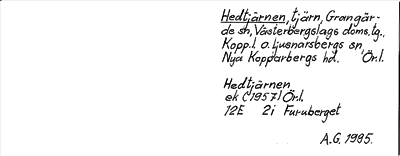 Hedtjärnen, tjärn, Grangär-
de sn, Västerbergslags doms.tg.,
Kopp.l. o. Ljusnarsbergs sn,
Nya Kopparbergs hd. Ör.l.
Hedtjärnen
ek (1957) Ör.l.
12E 2i Furuberget
A.G. 1995.